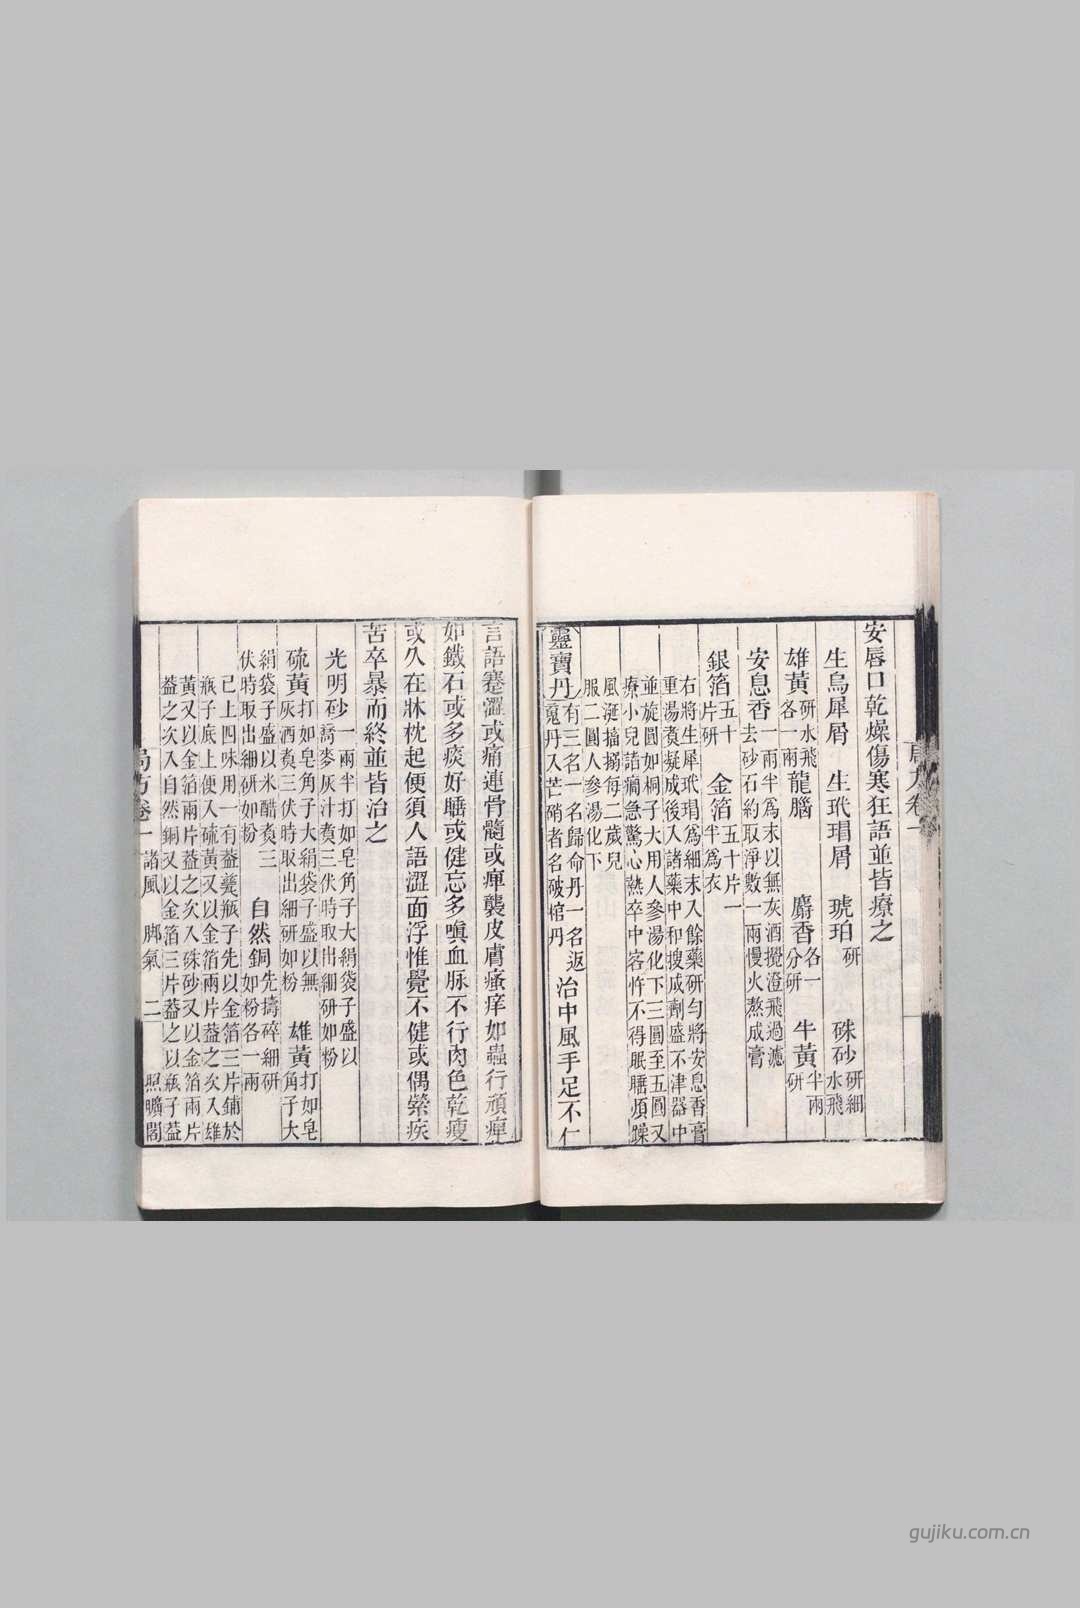 安唇口乾燥傷寒狂語並皆療之
生烏犀屑　生玳瑁屑　琥珀研　硃砂研細水飛
雄黃研水飛各一兩　龍腦　麝香各一分研　牛黃半兩研
安息香一兩半爲末以無灰酒攪澄飛過濾去砂石約取淨數一兩慢火熬成膏
銀箔五十片研　金箔五十片一半爲衣
右將生犀玳瑁爲細末入餘藥研勻將安息香膏
重湯煑凝成後入諸藥中和搜成劑盛不津器中
並旋圓如桐子大用人參湯化下三圓至五圓又
療小兒諸癇急驚心熱卒中客忤不得眠睡煩躁
風涎搐搦每二歲兒
服二圓人參湯化下
靈寶丹有三名一名歸命丹一名返魂丹入芒硝者名破棺丹　治中風手足不仁
言語蹇澀或痛連骨髓或痺襲皮膚瘙痒如蟲行頑痺
如鐵石或多痰好睡或健忘多嗔血脉不行肉色乾瘦
或久在牀枕起便須人語澀面浮惟覺不健或偶縈疾
苦卒暴而終並皆治之
光明砂一兩半打如皂角子大絹袋子盛以蕎麥灰汁煑三伏時取出細研如粉
硫黃打如皂角子大絹袋子盛以無灰酒煑三伏時取出細研如粉　雄黃打如皂角子大
絹袋子盛以米醋煑三伏時取出細研如粉　自然銅先擣碎細研如粉各一兩
已上四味用一有蓋甆瓶子先以金箔三片鋪於
瓶子底上便入硫黃又以金箔兩片蓋之次入雄
黃又以金箔兩片蓋之次入硃砂又以金箔兩片
蓋之次入自然銅又以金箔三片蓋之以瓶子蓋
局方卷一　諸風　脚氣　二　照曠閣
gujiku.com.cn